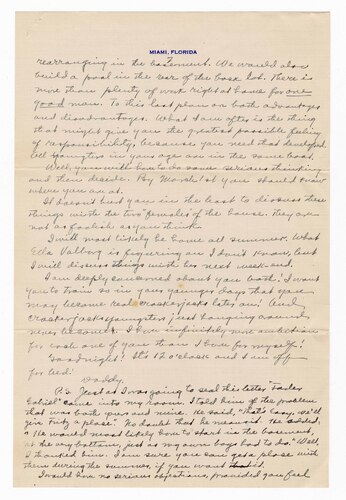 MIAMI, FLORIDA
rearranging in the basement. We would also
build a pool in the rear of the back lot. There is
more than plenty of work right at home for one
good man. To this last plan are both advantages
and disadvantages. What I am after is the thing
that might give you the greatest possible feeling
of responsibility, because you need that developed.
All youngsters in your age are in the same boat.
Well, you will have to do some serious thinking
and then decide. By March 1st you should know
where you are at.
It doesn't hurt you in the least to discuss these
things with the two females of the house. They are
not as foolish as you think.
I will most likely be home all summer. What
Ella Valborg is figuring on I don't know, but
I will discuss things with her next week-end.
I am deeply concerned about you both! I want
you to train so in your younger days that you
may become real crackerjacks later on! And
crackerjacks youngsters just hanging around
never become. I have infinitely more ambition
for each one of you than I have for myself!
Goodnight! It's 12 o'clock and I am off
for bed.
Daddy.
P.S. Just as I was going to seal this letter
Gabriel" came into my room. I told him of the problem
that was both yours and mine. He said, "That's easy, we'll
give a place." No doubt that he meant it. He added,
"He would most likely have to start in the basement,
at the very bottom, just as my own boys had to do." Well,
I thanked him. I am sure you can get a place with
them during the summer, if you want it.
I would have no serious objections, provided you feel